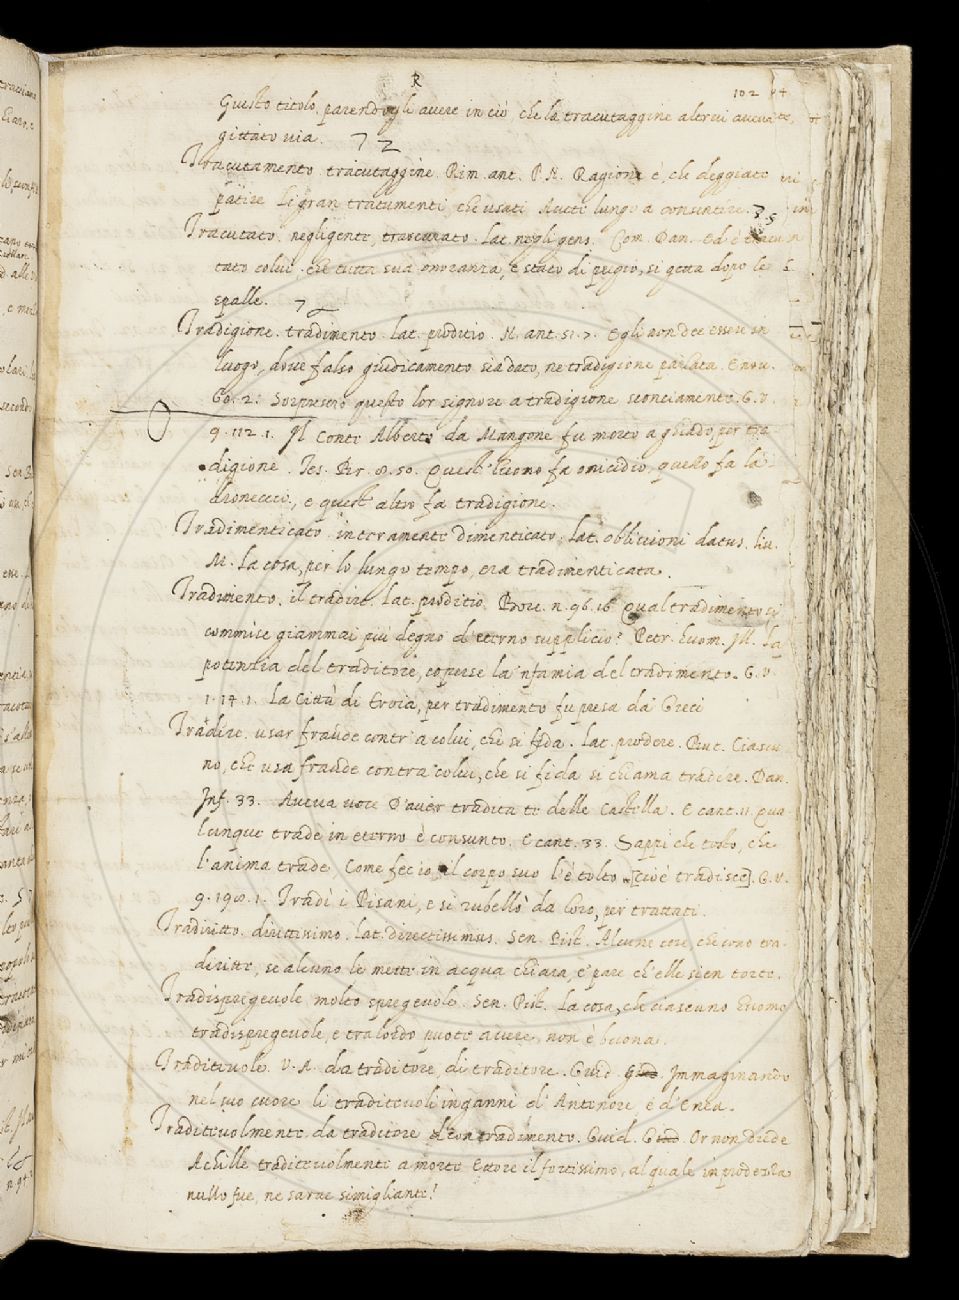 R
102
Questo titolo, parendogli avere in ciò, che la tracutaggine altrui aveva
gittato via.
Tracutamento. tracutaggine. Rim. ant. P. N. Ragione è, che deggiate
patire Li gran tracutamenti, che usati Avete lungo a consentire.
Tracutato. negligente, trascurato. Lat. negligens. Com. Dan. Ed è tracu
tato colui, che tutta sua onoranza, e stato di pregio, si getta dopo le
spalle.
Tradigione. tradimento. Lat. proditio. N. ant. 51. 7. Egli non dee essere in
luogo, dove falso giudicamento sia dato, ne tradigione parlata. E nov.
60. 2. Sorpresero questo lor signore a tradigione sconciamente. G. V.
9. 112. 1. Il Conte Alberto da Mangone fu morto a ghiado, per tra-
digione. Tes. Br. 8. 50. Quest' huomo fa omicidio, quello fa la
droneccio, e quest' altro fa tradigione.
Tradimenticato. interamente dimenticato. Lat. oblivioni datus. Liv.
M. La cosa, per lo lungo tempo, era tradimenticata.
Tradimento. il tradire. Lat. proditio. Bocc. n. 96. 16. Qual tradimento si
commise giammai più degno d'eterno supplicio? Petr. huom. Ill. La
potenzia del traditore, coperse la 'nfamia del tradimento. G. V.
1. 14. 1. La Città di Troia, per tradimento fu presa da Greci
Tradire. usar fraude contr' a colui, che si fida. Lat. prodere. But. Ciascu
no, che usa fraude contra colui, che si fida si chiama tradere. Dan.
Inf. 33. Aveva voce D'aver tradita te delle Castella. E cant. 11. Qua-
lunque trade in eterno è consunto. E cant. 33. Sappi che tosto, che
l'anima trade, Come fec' io, il corpo suo l'è tolto [cioè tradisce]. G. V.
9. 190. 1. Tradì i Pisani, e si rubellò da loro, per trattati.
Tradiritto. dirittissimo. Lat. directissimus. Sen. Pist. Alcune cose, che sono tra-
diritte, se alcuno le mette in acqua chiara, e' pare ch'elle sien torte.
Tradispregevole. molto spregevole. Sen. Pist. La cosa, che ciascuno huomo
tradispregevole, e tralordo puote avere, non è buona.
Traditevole. V. A. da traditore, di traditore. Guid. G. Immaginando
nel suo cuore li traditevoli inganni d' Antenore, e d' Enea.
Traditevolmente. da traditore con tradimento. Guid. G. Or non diede
Achille traditevolmente a morte Ettore il fortissimo, al quale in prodezza
nullo fue, ne sarae simigliante!